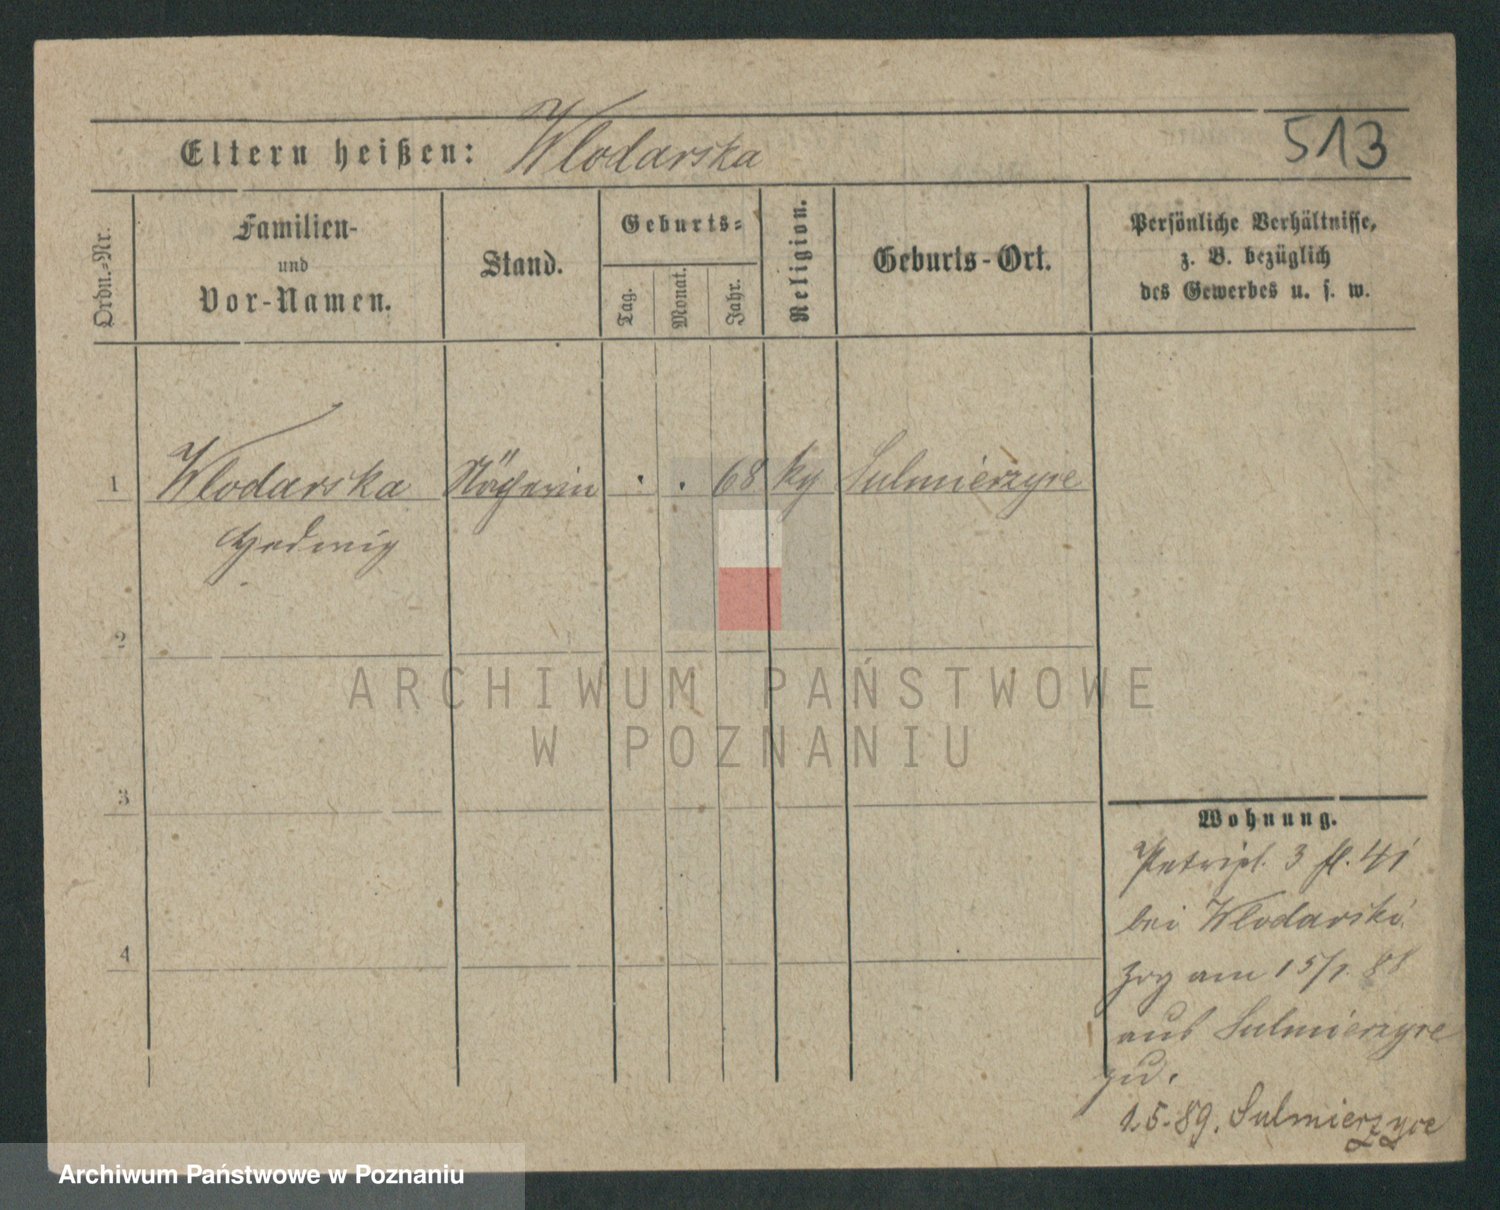 Eltern heißen: Wlodarska
513
Ordn.-Nr.
Familien-
und
Vor-Namen.
Stand.
Geburts-
Tag.
Monat.
Jahr.
Religion.
Geburts-Ort.
Persönliche Verhältnisse,
z. B. bezüglich
des Gewerbes u. s. w.
1 Wlodarska Näherin . . 68 Sulmierzyce
Hedwig
2
3
4
ARCHIWUM PAŃSTWOWE
W POZNANIU
Wohnung.
Petripl. 3 41
bei Wlodarski
am 15/7. 88
aus Sulmierzyce
zu.
1.5.89. Sulmierzyce
Archiwum Państwowe w Poznaniu